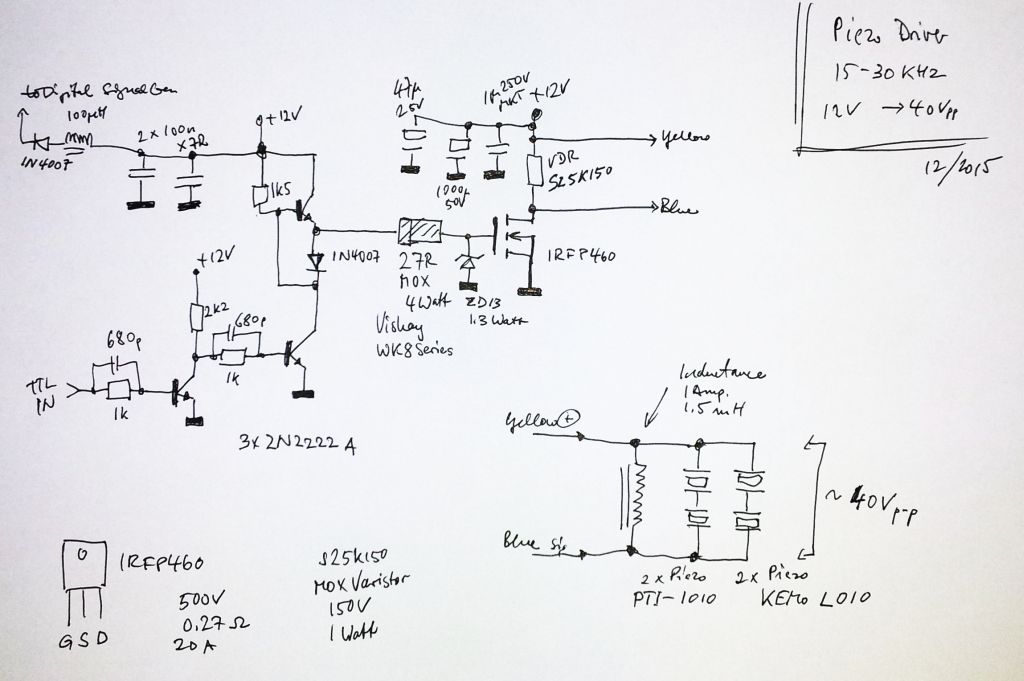 Piezo Driver
15-30KHz
12V → 40Vpp
12/2015
to Digital Signal Gen
100µH
1N4007
2x100n
x7R
+12V
1k5
1N4007
47µ
25V
1µ 250V
MKT
+12V
1000µ
50V
VDR
S25K150
Yellow
Blue
27R
MOX
4Watt
Vishay
WK8 Series
ZD13
1.3 Watt
IRFP460
+12V
2k2
680p
1k
680p
1k
TTL
IN
3x2N2222A
Inductance
1 Amp.
1.5mH
Yellow +
Blue
~ 40Vp-p
2x Piezo
PTI-1010
2x Piezo
KEMO L010
IRFP460
500V
0.27Ω
20A
G S D
S25K150
MOX Varistor
150V
1 Watt